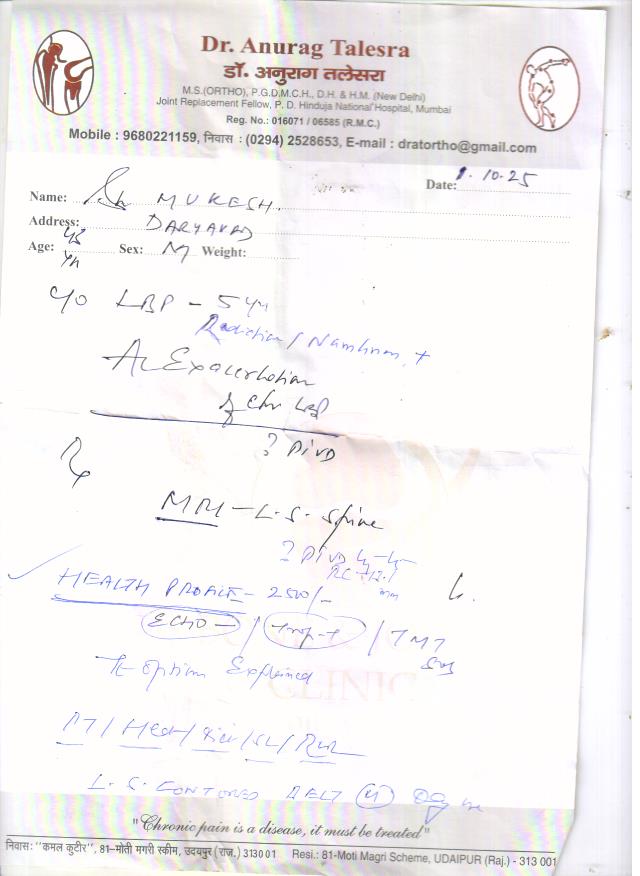 Dr. Anurag Talesra
डॉ. अनुराग तलेसरा
M.S.(ORTHO), P.G.D.M.C.H., D.H. & H.M. (New Delhi)
Joint Replacement Fellow, P. D. Hinduja National Hospital, Mumbai
Reg. No.: 016071 / 06585 (R.M.C.)
Mobile : 9680221159, निवास : (0294) 2528653, E-mail : dratortho@gmail.com
Date: 1.10.25
Name: Sh MUKESH
Address: DARYAVAD
Age: 45 yr Sex: M Weight:
C/O LBP - 5 yr
Radiation / Numbness +
Ac Exacerbation
of Chr LBP
? PIVD
Rx
MRI - L.S. Spine
? PIVD L4-L5
HEALTH PROFILE - 2500/-
ECHO / Trop-T / TMT
Explained
L.S. CONTOURED BELT (M)
CLINIC
"Chronic pain is a disease, it must be treated"
निवास: "कमल कुटीर", 81-मोती मगरी स्कीम, उदयपुर (राज.) 313001 Resi.: 81-Moti Magri Scheme, UDAIPUR (Raj.) - 313 001